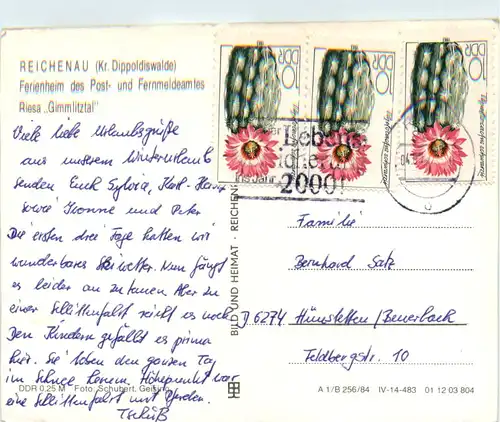 REICHENAU (Kr. Dippoldiswalde)
Ferienheim des Post- und Fernmeldeamtes
Riesa „Gimmlitztal"
Viele liebe Urlaubsgrüße
aus unserem Winterurlaub
senden Euch Sylvia, Karl-Heinz
sowie Yvonne und Peter
Die ersten drei Tage hatten wir
wunderbares Skiwetter. Nun fängt
es leider an zu tauen. Aber zu
einer Schlittenfahrt reicht es noch
Den Kindern gefällt es prima
hier. Sie toben den ganzen Tag
im Schnee herum. Höhepunkt war
eine Schlittenfahrt mit Pferden.
Tschüß
DDR 0,25 M Foto: Schubert, Geising
BILD UND HEIMAT · REICHENB
DDR 10
DDR 10
DDR 10
2000!
Familie
Bernhard Satz
D 6274 Hünstetten/Beuerbach
Feldbergstr. 10
A 1/B 256/84 IV-14-483 01 12 03 804